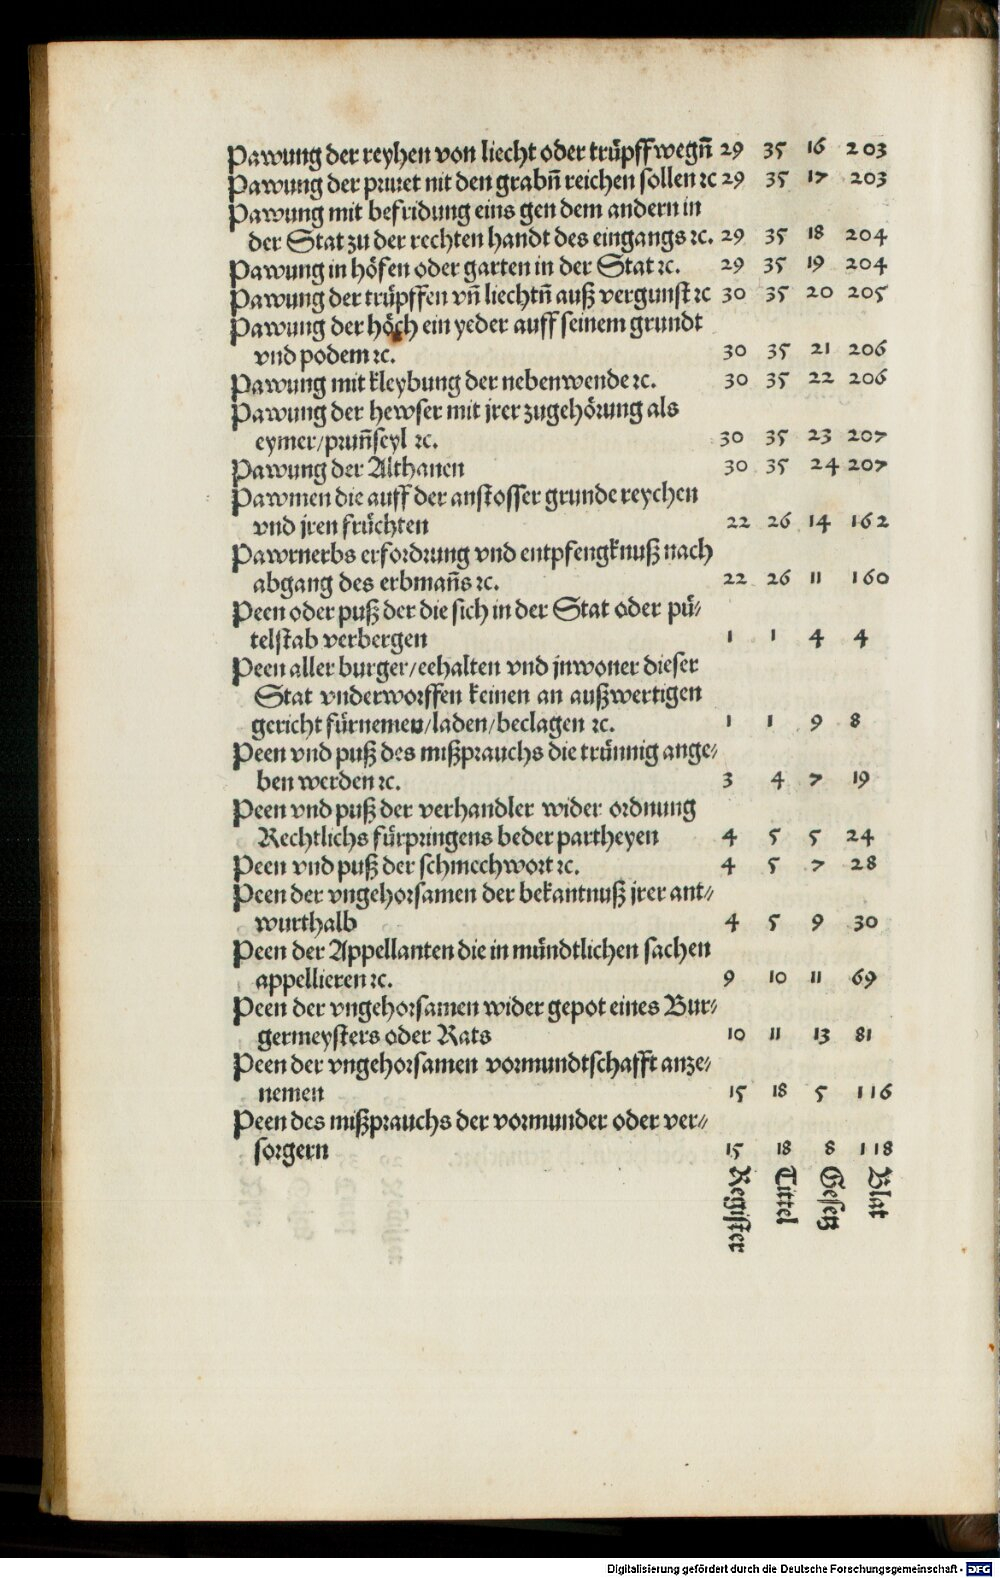 Pawung der reyhen von liecht oder trüpff wegn̄ 29 35 16 203
Pawung der priuet nit den grabn̄ reichen sollen ⁊c 29 35 17 203
Pawung mit befridung eins gen dem andern in
der Stat zu der rechten handt des eingangs ⁊c. 29 35 18 204
Pawung in höfen oder garten in der Stat ⁊c. 29 35 19 204
Pawung der trüpffen vn̄ liechtn̄ auß vergunst ⁊c 30 35 20 205
Pawung der höch ein yeder auff seinem grundt
vnd podem ⁊c. 30 35 21 206
Pawung mit kleybung der nebenwende ⁊c. 30 35 22 206
Pawung der hewser mit jrer zugehörung als
eymer/prun̄seyl ⁊c. 30 35 23 207
Pawung der Althanen 30 35 24 207
Pawmen die auff der anstosser grunde reychen
vnd jren früchten 22 26 14 162
Pawrnerbs erfordrung vnd entpfengknuß nach
abgang des erbman̄s ⁊c. 22 26 11 160
Peen oder puß der die sich in der Stat oder pü⸗
telstab verbergen 1 1 4 4
Peen aller burger/eehalten vnd jnwoner dieser
Stat vnderworffen keinen an außwertigen
gericht fürnemen/laden/beclagen ⁊c. 1 1 9 8
Peen vnd puß des mißprauchs die trünnig ange⸗
ben werden ⁊c. 3 4 7 19
Peen vnd puß der verhandler wider ordnung
Rechtlichs fürpringens beder partheyen 4 5 5 24
Peen vnd puß der schmechwort ⁊c. 4 5 7 28
Peen der vngehorsamen der bekantnuß jrer ant⸗
wurthalb 4 5 9 30
Peen der Appellanten die in mündtlichen sachen
appellieren ⁊c. 9 10 11 69
Peen der vngehorsamen wider gepot eines Bur⸗
germeysters oder Rats 10 11 13 81
Peen der vngehorsamen vormundtschafft anze⸗
nemen 15 18 5 116
Peen des mißprauchs der vormunder oder ver⸗
sorgern 15 18 8 118
Register Tittel Gesetz Blat
Digitalisierung gefördert durch die Deutsche Forschungsgemeinschaft - DFG